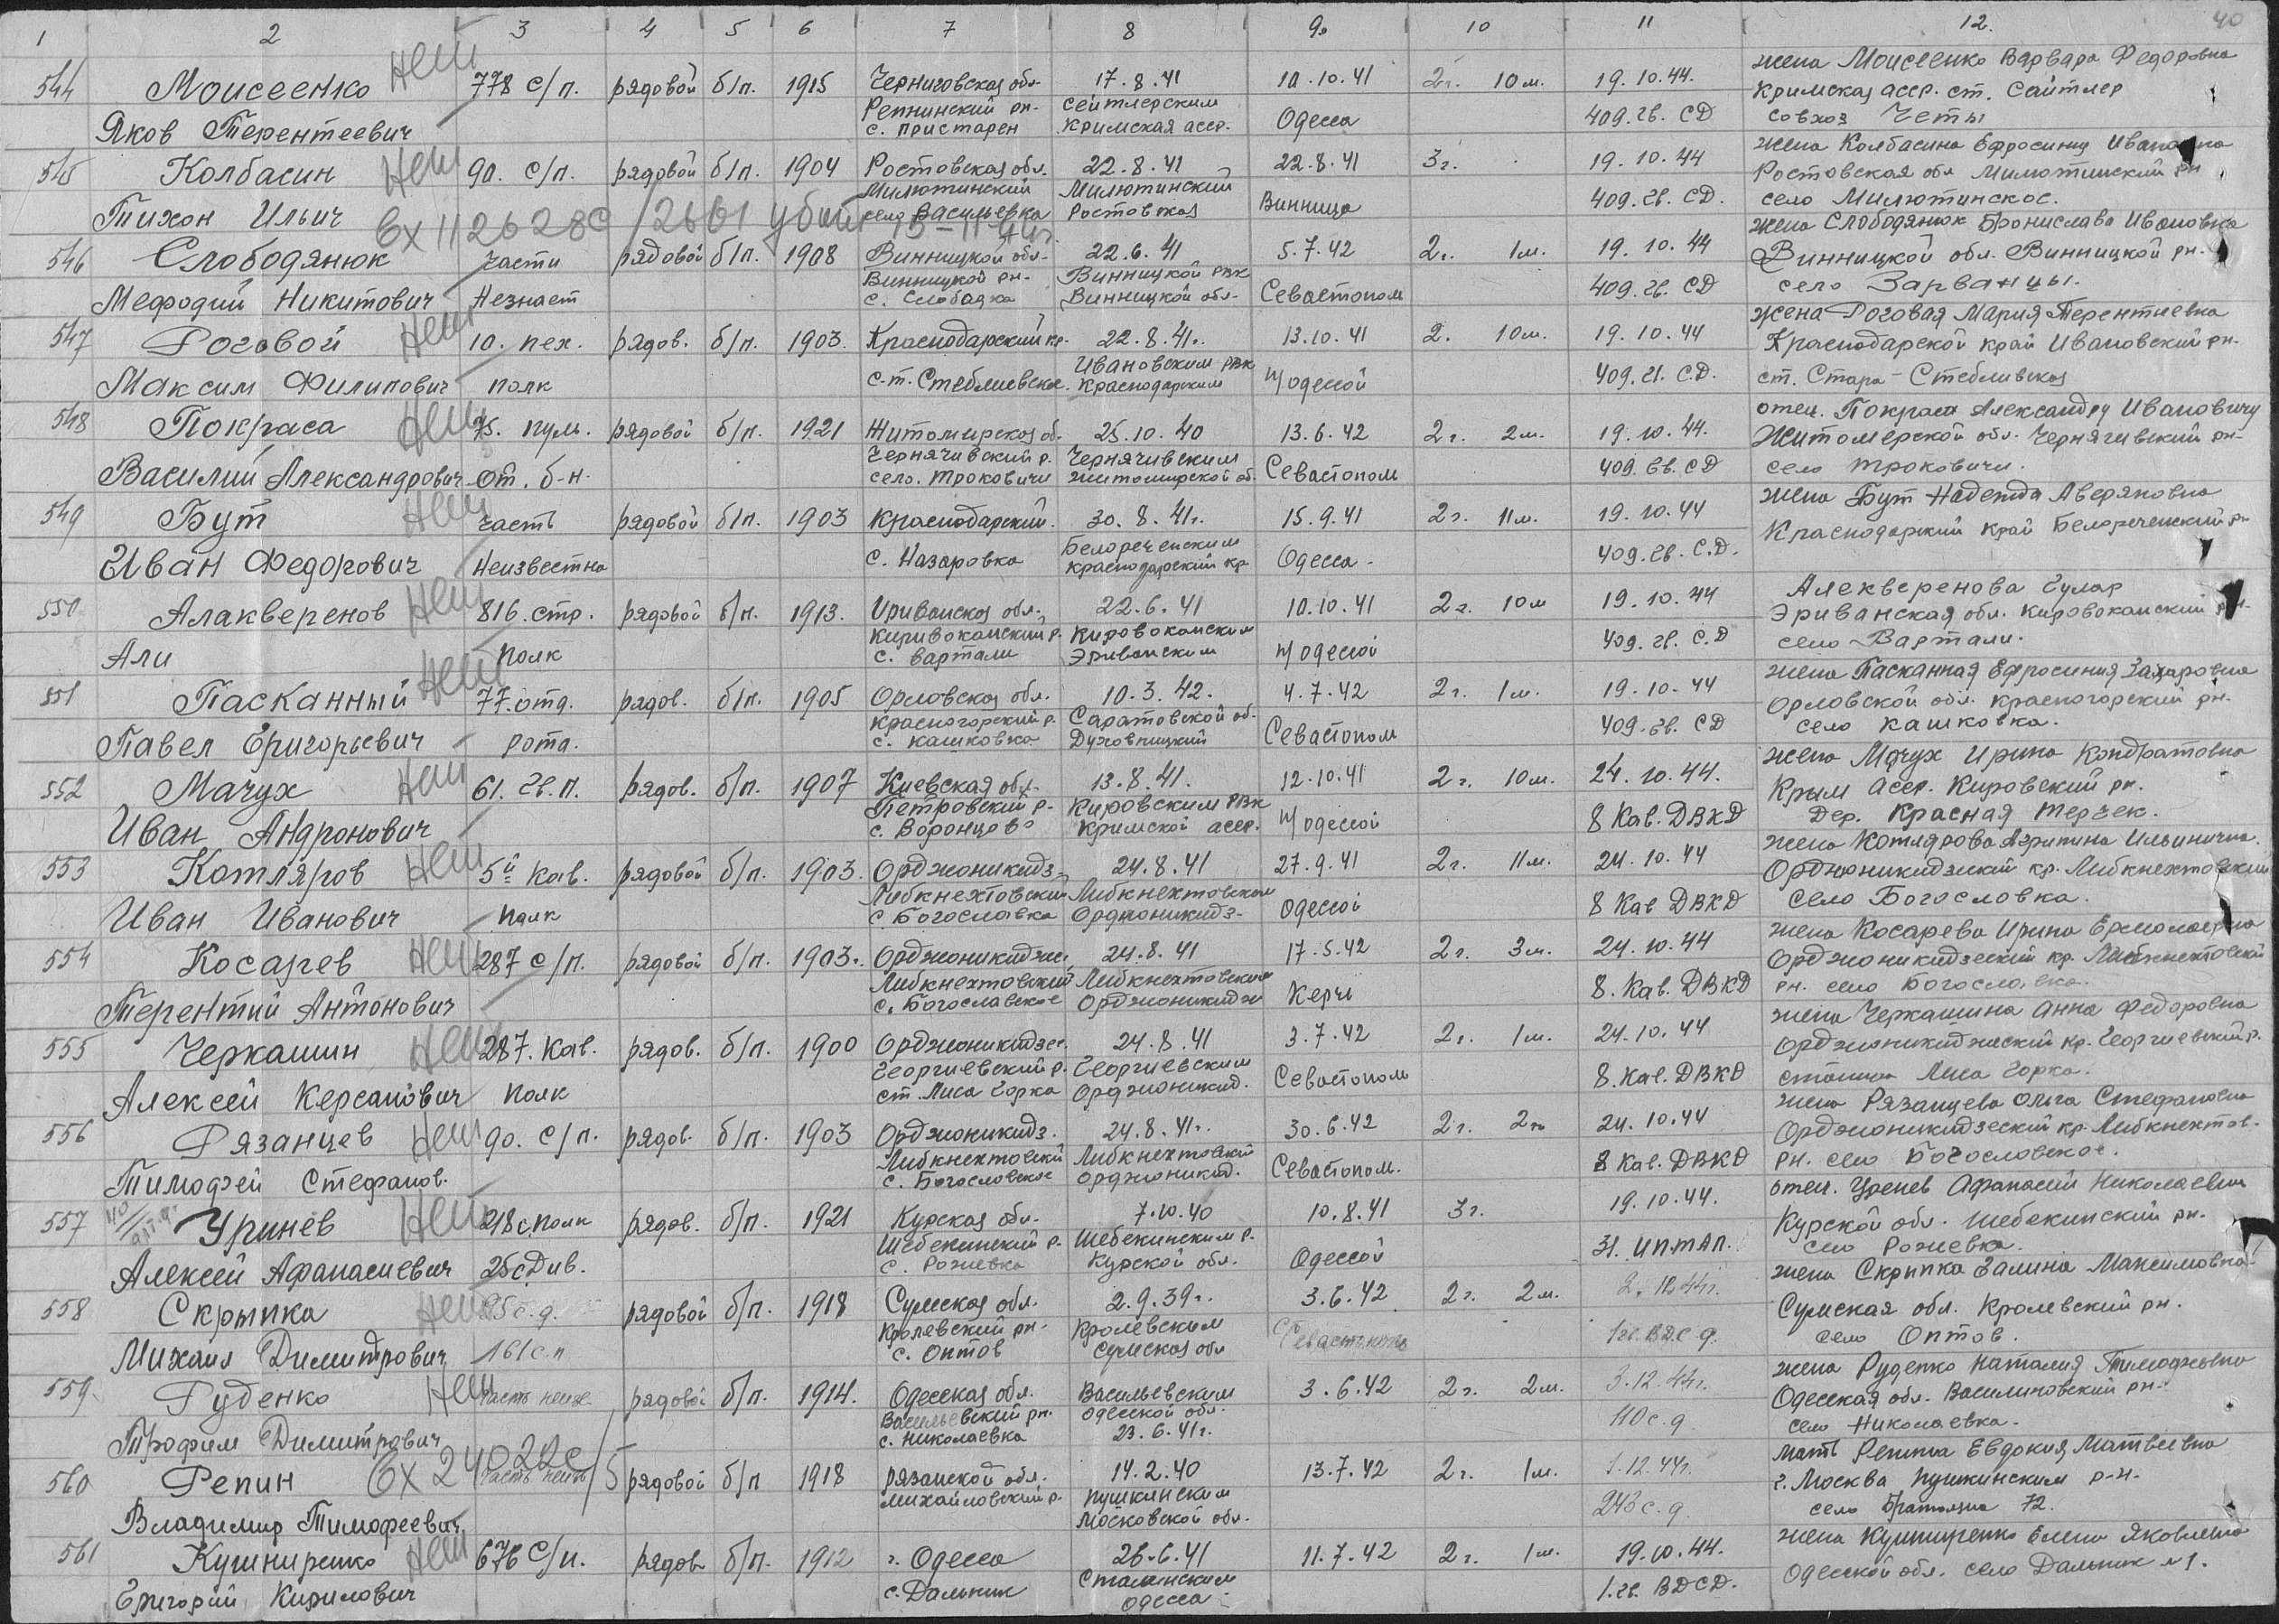 1 2 3 4 5 6 7 8 9. 10 11 12. 40
544 Моисеенко нет 778 с/п. рядовой б/п. 1915 Черниговская обл. 17.8.41 10.10.41 2г. 10м. 19.10.44. жена Моисеенко Варвара Федоровна
Яков Терентеевич Репнинский рн. сейтлерским Одесса 409.гв. СД Кримская асср. ст. Сайтлер
с. Пристарен Кримская асср. совхоз Четы
545 Колбасин нет 90. с/п. рядовой б/п. 1904 Ростовская обл. 22.8.41 22.8.41 3г. 19.10.44 жена Колбасина Ефросиния Ивановна
Тихон Ильич Милютинский Милютинский Винница 409.гв. СД. Ростовская обл Милютинский рн
село Васильевка Ростовская село Милютинское.
вх 112628с/2661 убит 15-11-44г.
546 Слободянюк части рядовой б/п. 1908 Винницкой обл. 22.6.41 5.7.42 2г. 1м. 19.10.44 жена Слободянюк Бронислава Ивановна
Мефодий Никитович Незнает Винницкой рн. Винницкой рвк Севастополь 409.гв. СД Винницкой обл. Винницкой рн.
с. Слободка Винницкой обл. село Зарванцы.
547 Роговой нет 10. пех. рядов. б/п. 1903. Краснодарский кр. 22.8.41г. 13.10.41 2. 10м. 19.10.44 жена Роговая Мария Терентиевна
Максим Филипович полк с.т. Стеблиевская Ивановским рвк п/одессой 409.гв. С.Д. Краснодарской край Ивановский рн.
Краснодарским ст. Стара-Стебливская
548 Покраса нет 75. пуль. рядовой б/п. 1921 Житомирская об. 25.10.40 13.6.42 2г. 2м. 19.10.44. отец. Покраса Александру Ивановичу
Василий Александрович от. б-н. Чернячивский р. Чернячивским Севастополь 409.гв. СД Житомерской обл. Чернячивский рн-
село. Троковичи житомирской об. село Троковичи.
549 Бут нет часть рядовой б/п. 1903 Краснодарский. 30.8.41г. 15.9.41 2г. 11м. 19.10.44 жена Бут Надежда Аверяновна
Иван Федорович Неизвестна с. Назаровка Белореченским Одесса. 409.гв. С.Д. Краснодарский край Белореченский рн
краснодарский кр
550 Алакверенов нет 816. стр. рядовой б/п. 1913. Ириванская обл. 22.6.41 10.10.41 2г. 10м 19.10.44 Алекверенова Гулар
Али полк Кировоканский р. Кировоканским п/одессой 409.гв. С.Д Эриванская обл. Кировоканский рн-
с. Вартали Эриванским село Вартали.
551 Пасканный нет 77. отд. рядов. б/п. 1905 Орловская обл. 10.3.42. 4.7.42 2г. 1м. 19.10.44 жена Пасканная Ефросиния Захаровна
Павел Григорьевич рота. Красногорский р. Саратовской об. Севастополь 409.гв. СД Орловской обл. Красногорский рн.
с. Кашковка Духовницкий село Кашковка.
552 Мачух нет 61. гв.п. рядов. б/п. 1907 Киевская обл. 13.8.41. 12.10.41 2г. 10м. 24.10.44. жена Мачух Ирина Кондратовна
Иван Андронович Петровский р. Кировским РВК п/одессой 8 Кав. ДВКД Крым асср. Кировский рн.
с. Воронцово Кримской асср. Дер. Красная Терчек.
553 Котляров нет 5й кав. рядовой б/п. 1903. Орджоникидз. 24.8.41 27.9.41 2г. 11м. 24.10.44 жена Котлярова Агрипина Ильинична.
Иван Иванович полк Либкнехтовский Либкнехтовском Одессой 8 Кав ДВКД Орджоникидзский кр. Либкнехтовский
с. Богословка Орджоникидз. село Богословка.
554 Косарев нет 287 с/п. рядовой б/п. 1903г. Орджоникидзе. 24.8.41 17.5.42 2г. 3м. 24.10.44 жена Косарева Ирина Ермолаевна
Терентий Антонович Либкнехтовский Либкнехтовский Керчь 8. Кав. ДВКД Орджоникидзеский кр. Либкнехтовский
с. Богославское Орджоникидзе рн. село Богословка.
555 Черкашин нет 287. кав. рядов. б/п. 1900 Орджоникидзес. 24.8.41 3.7.42 2г. 1м. 24.10.44 жена Черкашина Анна Федоровна
Алексей Керсанович полк Георгиевский р. Георгиевским Севастополь 8. Кав. ДВКД Орджоникиджеский кр. Георгиевский р.
ст. Лиса Горка Орджоникид. станица Лиса Горка.
556 Рязанцев нет 90. с/п. рядов. б/п. 1903 Орджоникидз. 24.8.41г. 30.6.42 2г. 2м 24.10.44 жена Рязанцева Ольга Стефановна
Тимофей Стефанов. Либкнехтовский Либкнехтовский Севастополь. 8 Кав. ДВКД Орджоникидзеский кр. Либкнехтов.
с. Богословское Орджоникид. рн. село Богословское.
557 Уринев нет 218 с. полк рядов. б/п. 1921 Курская обл. 7.10.40 10.8.41 3г. 19.10.44. отец. Уренев Афанасий Николаевич
Алексей Афанасиевич 25с. Див. Шебекинский р. Шебекинским р. Одессой 31. ИПТАП. Курской обл. Шебекинский рн.
с. Рожевка Курской обл. село Рожевка.
558 Скрыпка нет 25 с.д. рядовой б/п. 1918 Сумская обл. 2.9.39г. 3.6.42 2г. 2м. 2.12.44г. жена Скрыпка Галина Максимовна
Михаил Димитрович 161 с.п Кролевский рн. Кролевским Севастополь 1 гв. ВДС д. Сумская обл. Кролевский рн.
с. Оптов Сумская обл село Оптов.
559. Руденко нет часть неизв. рядовой б/п. 1914. Одесская обл. Васильевским 3.6.42 2г. 2м. 3.12.44г. жена Руденко Наталия Тимофеевна
Трофим Димитрович Васильевский рн. одесской обл. 110 с.д Одесская обл. Василиновский рн.
с. Николаевка 23.6.41г. село Николаевка.
560 Репин вх 24022с/5 часть неизв рядовой б/п 1918 рязанской обл. 14.2.40 13.7.42 2г. 1м. 1.12.44г. мать Репина Евдокия Матвеевна
Владимир Тимофеевич михайловский р. Пушкинским 243 с.д г. Москва Пушкинским р-н.
Московской обл. село 72.
561 Кушниренко нет 676 с/п. рядов б/п. 1912 г. Одесса 26.6.41 11.7.42 2г. 1м. 19.10.44. жена Кушниренко Елена Яковлевна
Григорий Кирилович с. Дальник Сталинским 1. гв. ВДСД. Одесской обл. село Дальник №1.
Одесса